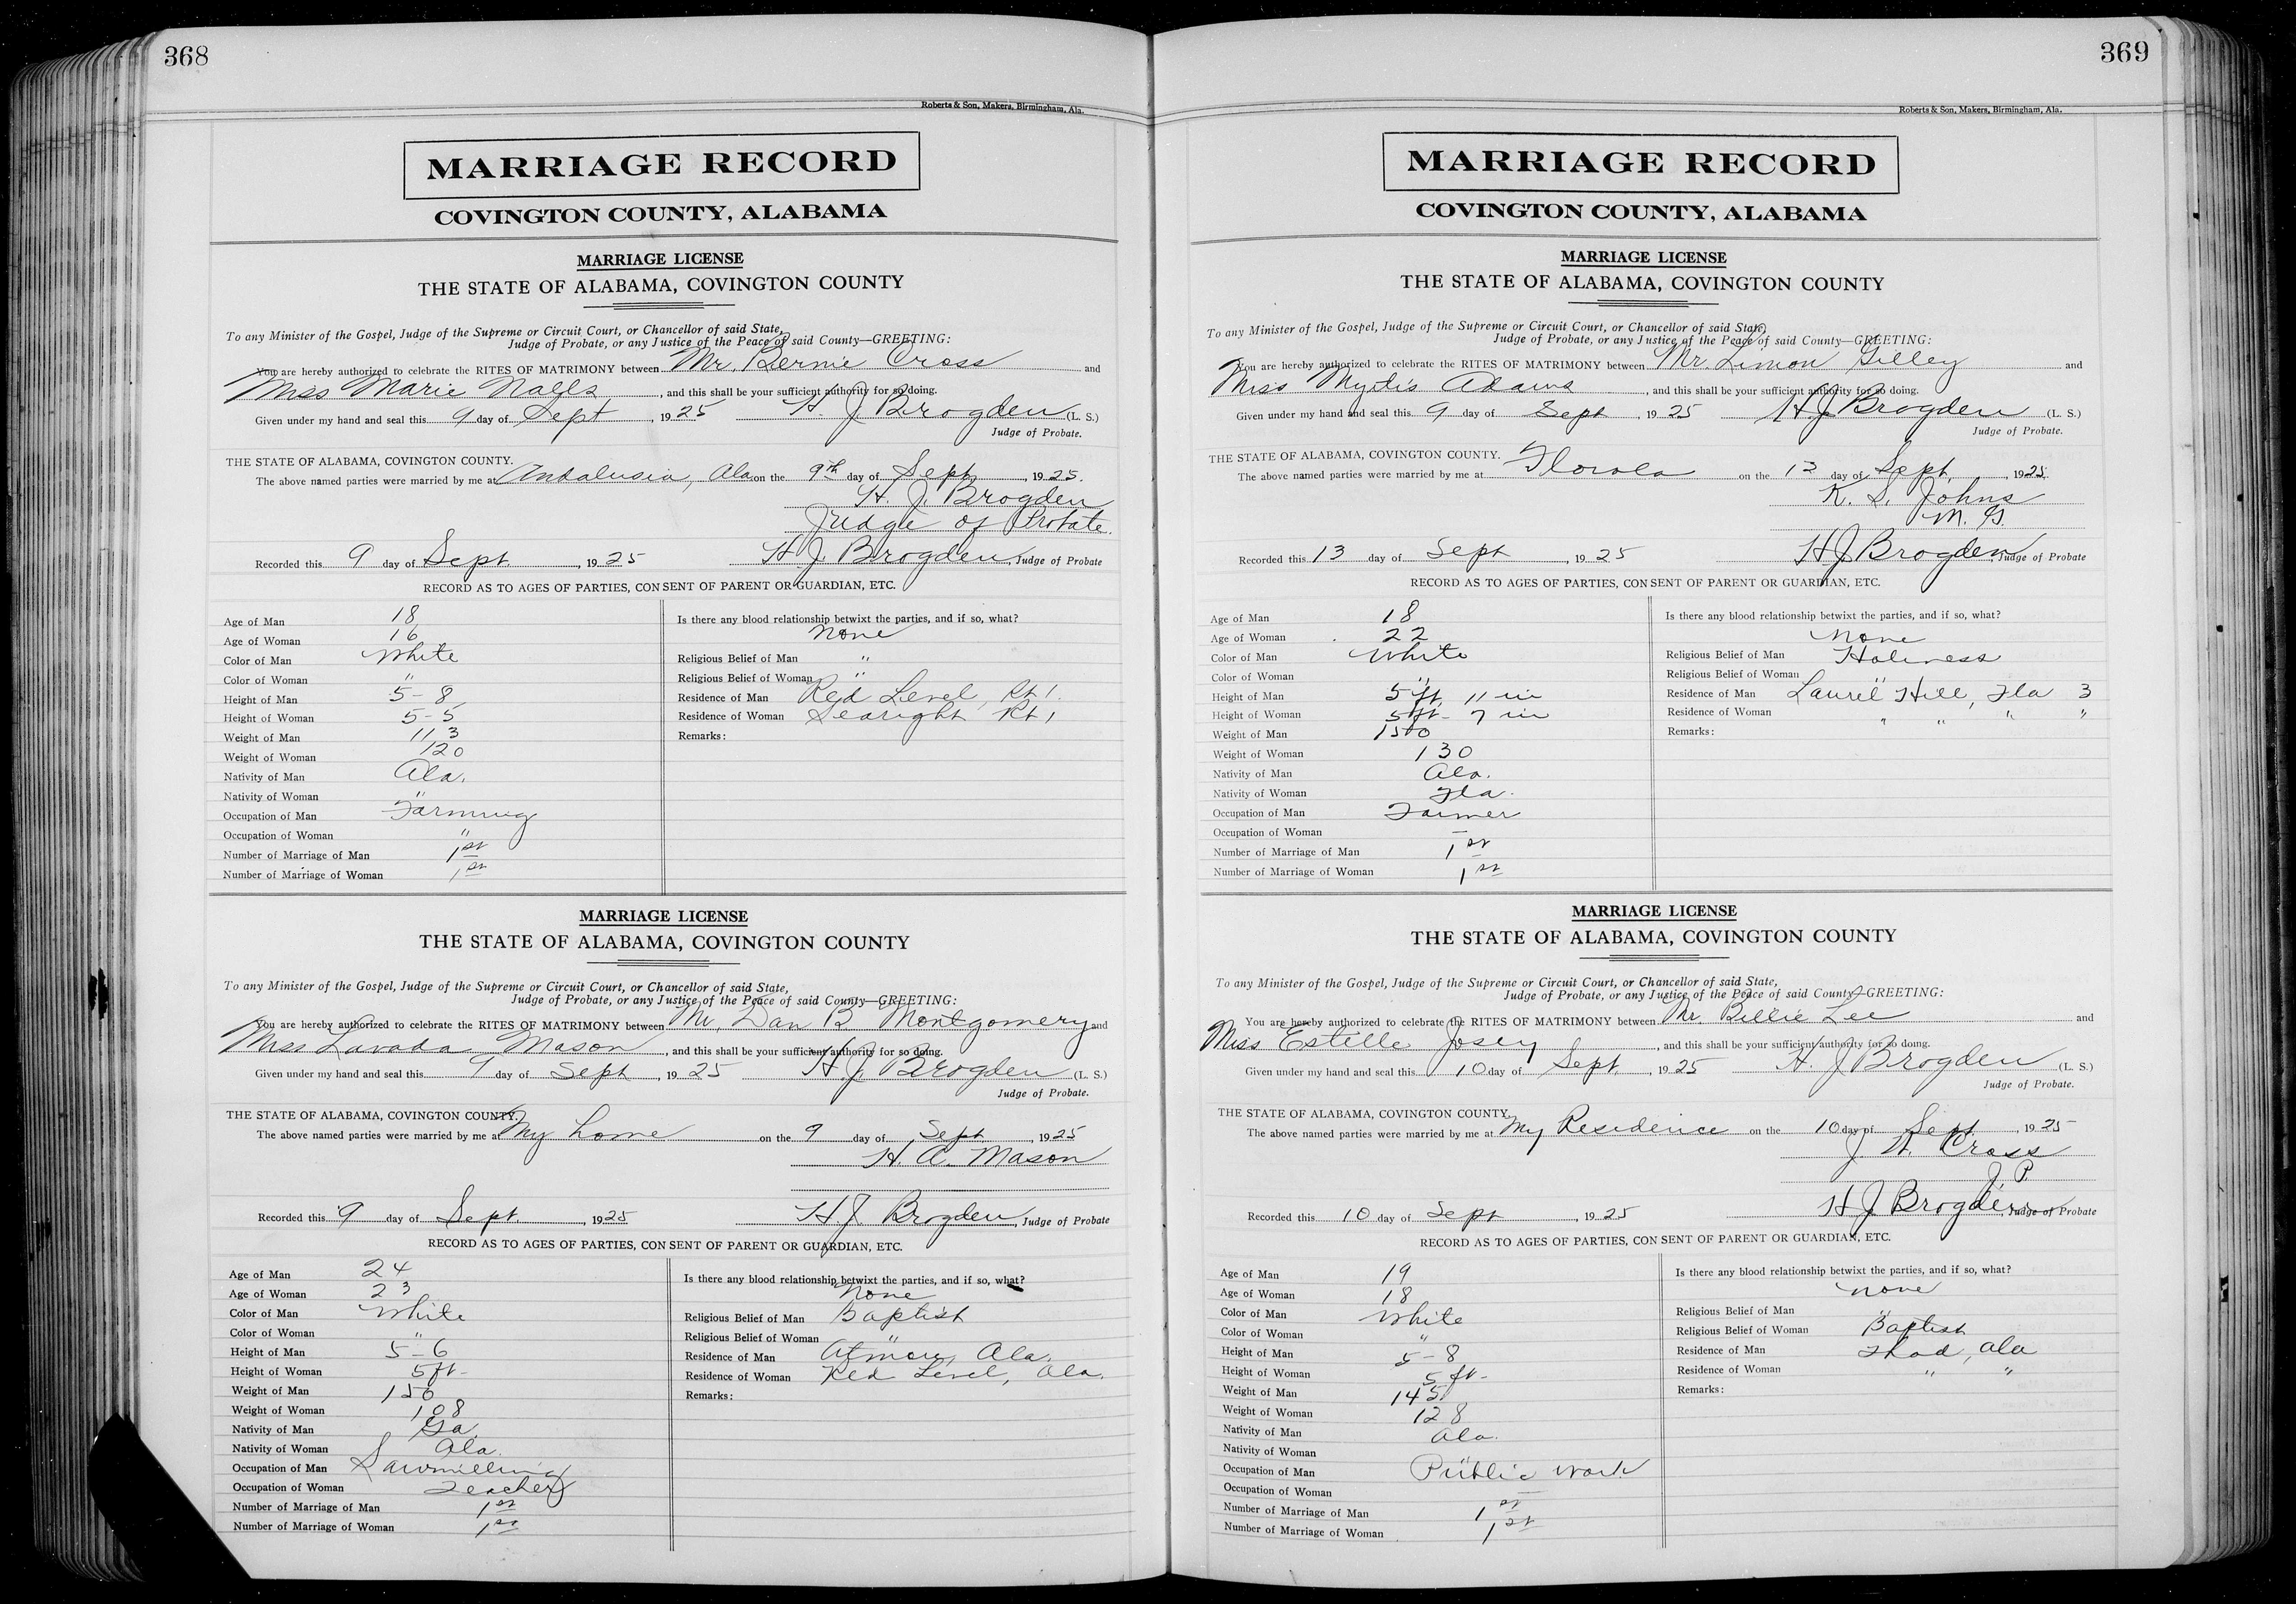 368
Roberts & Son, Makers, Birmingham, Ala.
MARRIAGE RECORD
COVINGTON COUNTY, ALABAMA
MARRIAGE LICENSE
THE STATE OF ALABAMA, COVINGTON COUNTY
To any Minister of the Gospel, Judge of the Supreme or Circuit Court, or Chancellor of said State,
Judge of Probate, or any Justice of the Peace of said County—GREETING:
You are hereby authorized to celebrate the RITES OF MATRIMONY between Mr. Bernie Cross and
Miss Marie Nalls, and this shall be your sufficient authority for so doing.
Given under my hand and seal this 9 day of Sept, 1925 H. J. Brogden (L. S.)
Judge of Probate.
THE STATE OF ALABAMA, COVINGTON COUNTY.
The above named parties were married by me at Andalusia, Ala on the 9th day of Sept, 1925.
H. J. Brogden
Judge of Probate.
Recorded this 9 day of Sept, 1925 H. J. Brogden, Judge of Probate
RECORD AS TO AGES OF PARTIES, CONSENT OF PARENT OR GUARDIAN, ETC.
Age of Man 18
Age of Woman 16
Color of Man White
Color of Woman "
Height of Man 5-8
Height of Woman 5-5
Weight of Man 113
Weight of Woman 120
Nativity of Man Ala.
Nativity of Woman "
Occupation of Man Farming
Occupation of Woman "
Number of Marriage of Man 1st
Number of Marriage of Woman 1st
Is there any blood relationship betwixt the parties, and if so, what?
None
Religious Belief of Man "
Religious Belief of Woman "
Residence of Man Red Level, Rt 1.
Residence of Woman Searight Rt 1
Remarks:
MARRIAGE LICENSE
THE STATE OF ALABAMA, COVINGTON COUNTY
To any Minister of the Gospel, Judge of the Supreme or Circuit Court, or Chancellor of said State,
Judge of Probate, or any Justice of the Peace of said County—GREETING:
You are hereby authorized to celebrate the RITES OF MATRIMONY between Mr. Dan B Montgomery and
Miss Lavada Mason, and this shall be your sufficient authority for so doing.
Given under my hand and seal this 9 day of Sept, 1925 H. J. Brogden (L. S.)
Judge of Probate.
THE STATE OF ALABAMA, COVINGTON COUNTY.
The above named parties were married by me at My home on the 9 day of Sept, 1925
H. A. Mason
Recorded this 9 day of Sept, 1925 H. J. Brogden, Judge of Probate
RECORD AS TO AGES OF PARTIES, CONSENT OF PARENT OR GUARDIAN, ETC.
Age of Man 24
Age of Woman 23
Color of Man White
Color of Woman "
Height of Man 5-6
Height of Woman 5 ft-
Weight of Man 150
Weight of Woman 108
Nativity of Man Ga.
Nativity of Woman Ala.
Occupation of Man Sawmilling
Occupation of Woman Teacher
Number of Marriage of Man 1st
Number of Marriage of Woman 1st
Is there any blood relationship betwixt the parties, and if so, what?
None
Religious Belief of Man Baptist
Religious Belief of Woman "
Residence of Man Atmore, Ala.
Residence of Woman Red Level, Ala.
Remarks:
369
Roberts & Son, Makers, Birmingham, Ala.
MARRIAGE RECORD
COVINGTON COUNTY, ALABAMA
MARRIAGE LICENSE
THE STATE OF ALABAMA, COVINGTON COUNTY
To any Minister of the Gospel, Judge of the Supreme or Circuit Court, or Chancellor of said State,
Judge of Probate, or any Justice of the Peace of said County—GREETING:
You are hereby authorized to celebrate the RITES OF MATRIMONY between Mr. Limon Gilley and
Miss Myrtis Adams, and this shall be your sufficient authority for so doing.
Given under my hand and seal this 9 day of Sept, 1925 H. J. Brogden (L. S.)
Judge of Probate.
THE STATE OF ALABAMA, COVINGTON COUNTY.
The above named parties were married by me at Florala on the 13 day of Sept, 1925.
K. S. Johns
M. G.
Recorded this 13 day of Sept, 1925 H. J. Brogden, Judge of Probate
RECORD AS TO AGES OF PARTIES, CONSENT OF PARENT OR GUARDIAN, ETC.
Age of Man 18
Age of Woman 22
Color of Man White
Color of Woman "
Height of Man 5 ft, 11 in
Height of Woman 5 ft- 7 in
Weight of Man 150
Weight of Woman 130
Nativity of Man Ala.
Nativity of Woman Fla.
Occupation of Man Farmer
Occupation of Woman —
Number of Marriage of Man 1st
Number of Marriage of Woman 1st
Is there any blood relationship betwixt the parties, and if so, what?
None
Religious Belief of Man Holiness
Religious Belief of Woman "
Residence of Man Laurel Hill, Fla 3
Residence of Woman " " " "
Remarks:
MARRIAGE LICENSE
THE STATE OF ALABAMA, COVINGTON COUNTY
To any Minister of the Gospel, Judge of the Supreme or Circuit Court, or Chancellor of said State,
Judge of Probate, or any Justice of the Peace of said County—GREETING:
You are hereby authorized to celebrate the RITES OF MATRIMONY between Mr. Billie Lee and
Miss Estelle Josey, and this shall be your sufficient authority for so doing.
Given under my hand and seal this 10 day of Sept, 1925 H. J. Brogden (L. S.)
Judge of Probate.
THE STATE OF ALABAMA, COVINGTON COUNTY.
The above named parties were married by me at My Residence on the 10 day of Sept, 1925
J. W. Cross
J. P.
Recorded this 10 day of Sept, 1925 H. J. Brogden, Judge of Probate
RECORD AS TO AGES OF PARTIES, CONSENT OF PARENT OR GUARDIAN, ETC.
Age of Man 19
Age of Woman 18
Color of Man White
Color of Woman "
Height of Man 5-8
Height of Woman 5 ft-
Weight of Man 145
Weight of Woman 128
Nativity of Man Ala.
Nativity of Woman "
Occupation of Man Public work
Occupation of Woman —
Number of Marriage of Man 1st
Number of Marriage of Woman 1st
Is there any blood relationship betwixt the parties, and if so, what?
None
Religious Belief of Man "
Religious Belief of Woman Baptist
Residence of Man Thad, Ala
Residence of Woman " "
Remarks: